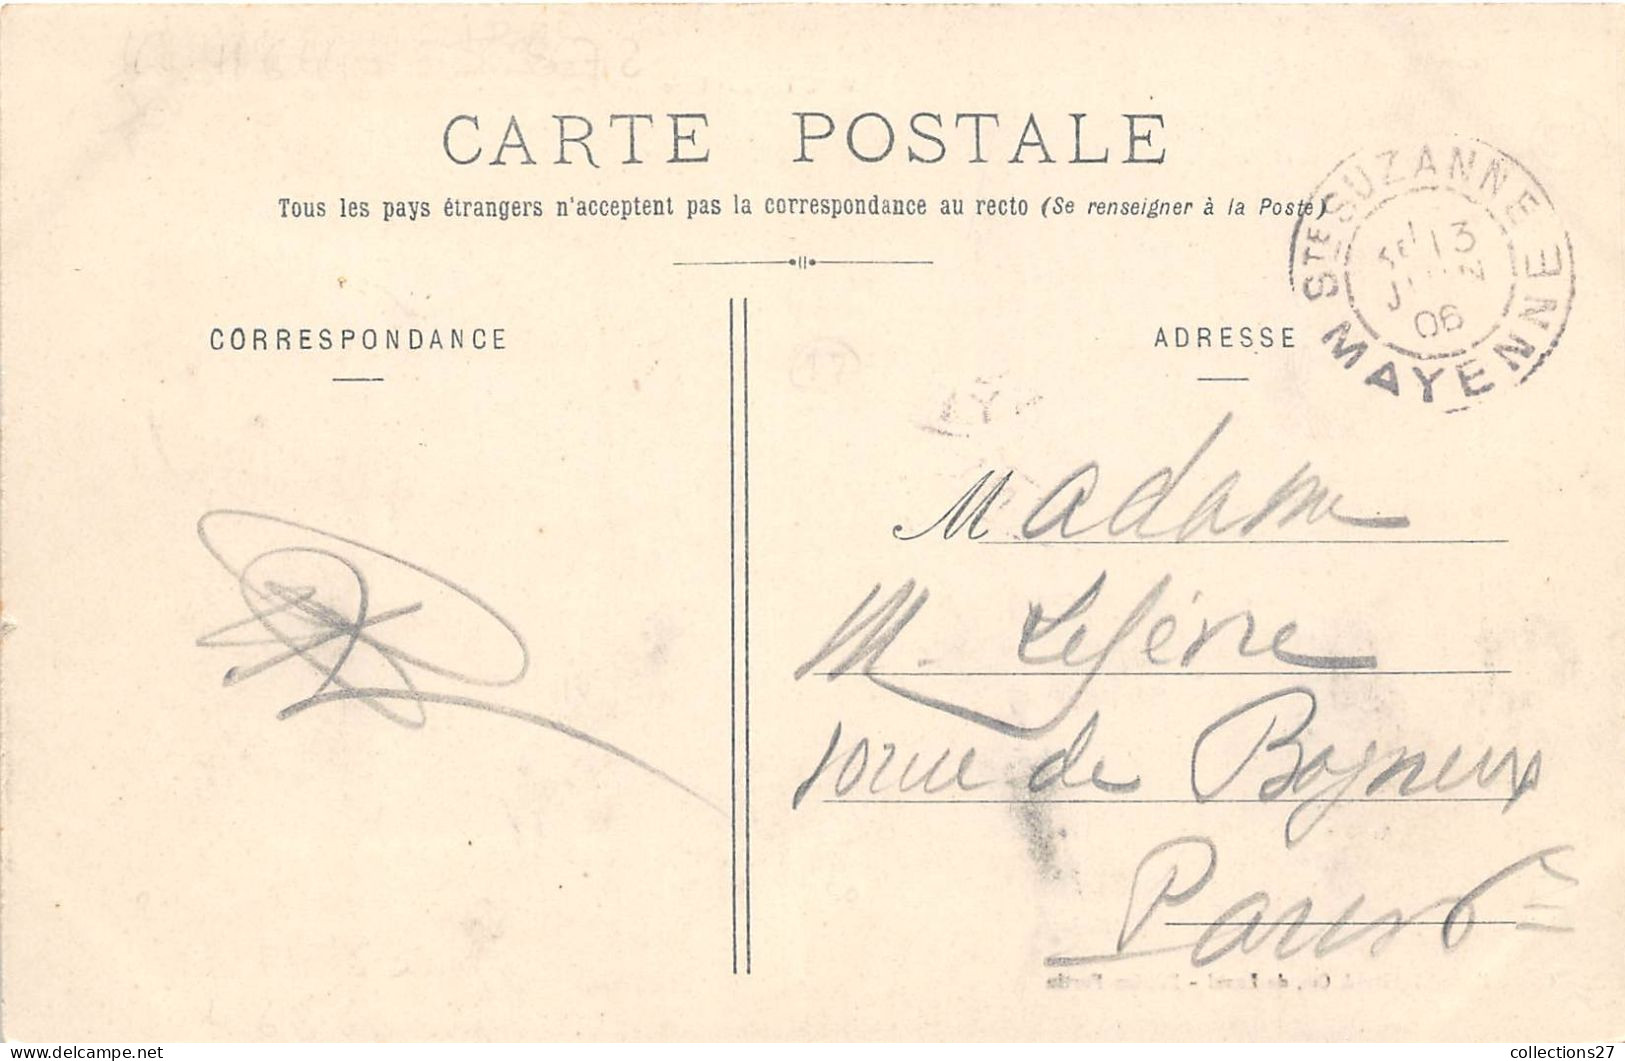 CARTE POSTALE
Tous les pays étrangers n'acceptent pas la correspondance au recto (Se renseigner à la Poste)
STE SUZANNE
13
06
MAYENNE
CORRESPONDANCE
ADRESSE
Madame
M. Lefèvre
10 rue de Bagneux
Paris 6e
collections27